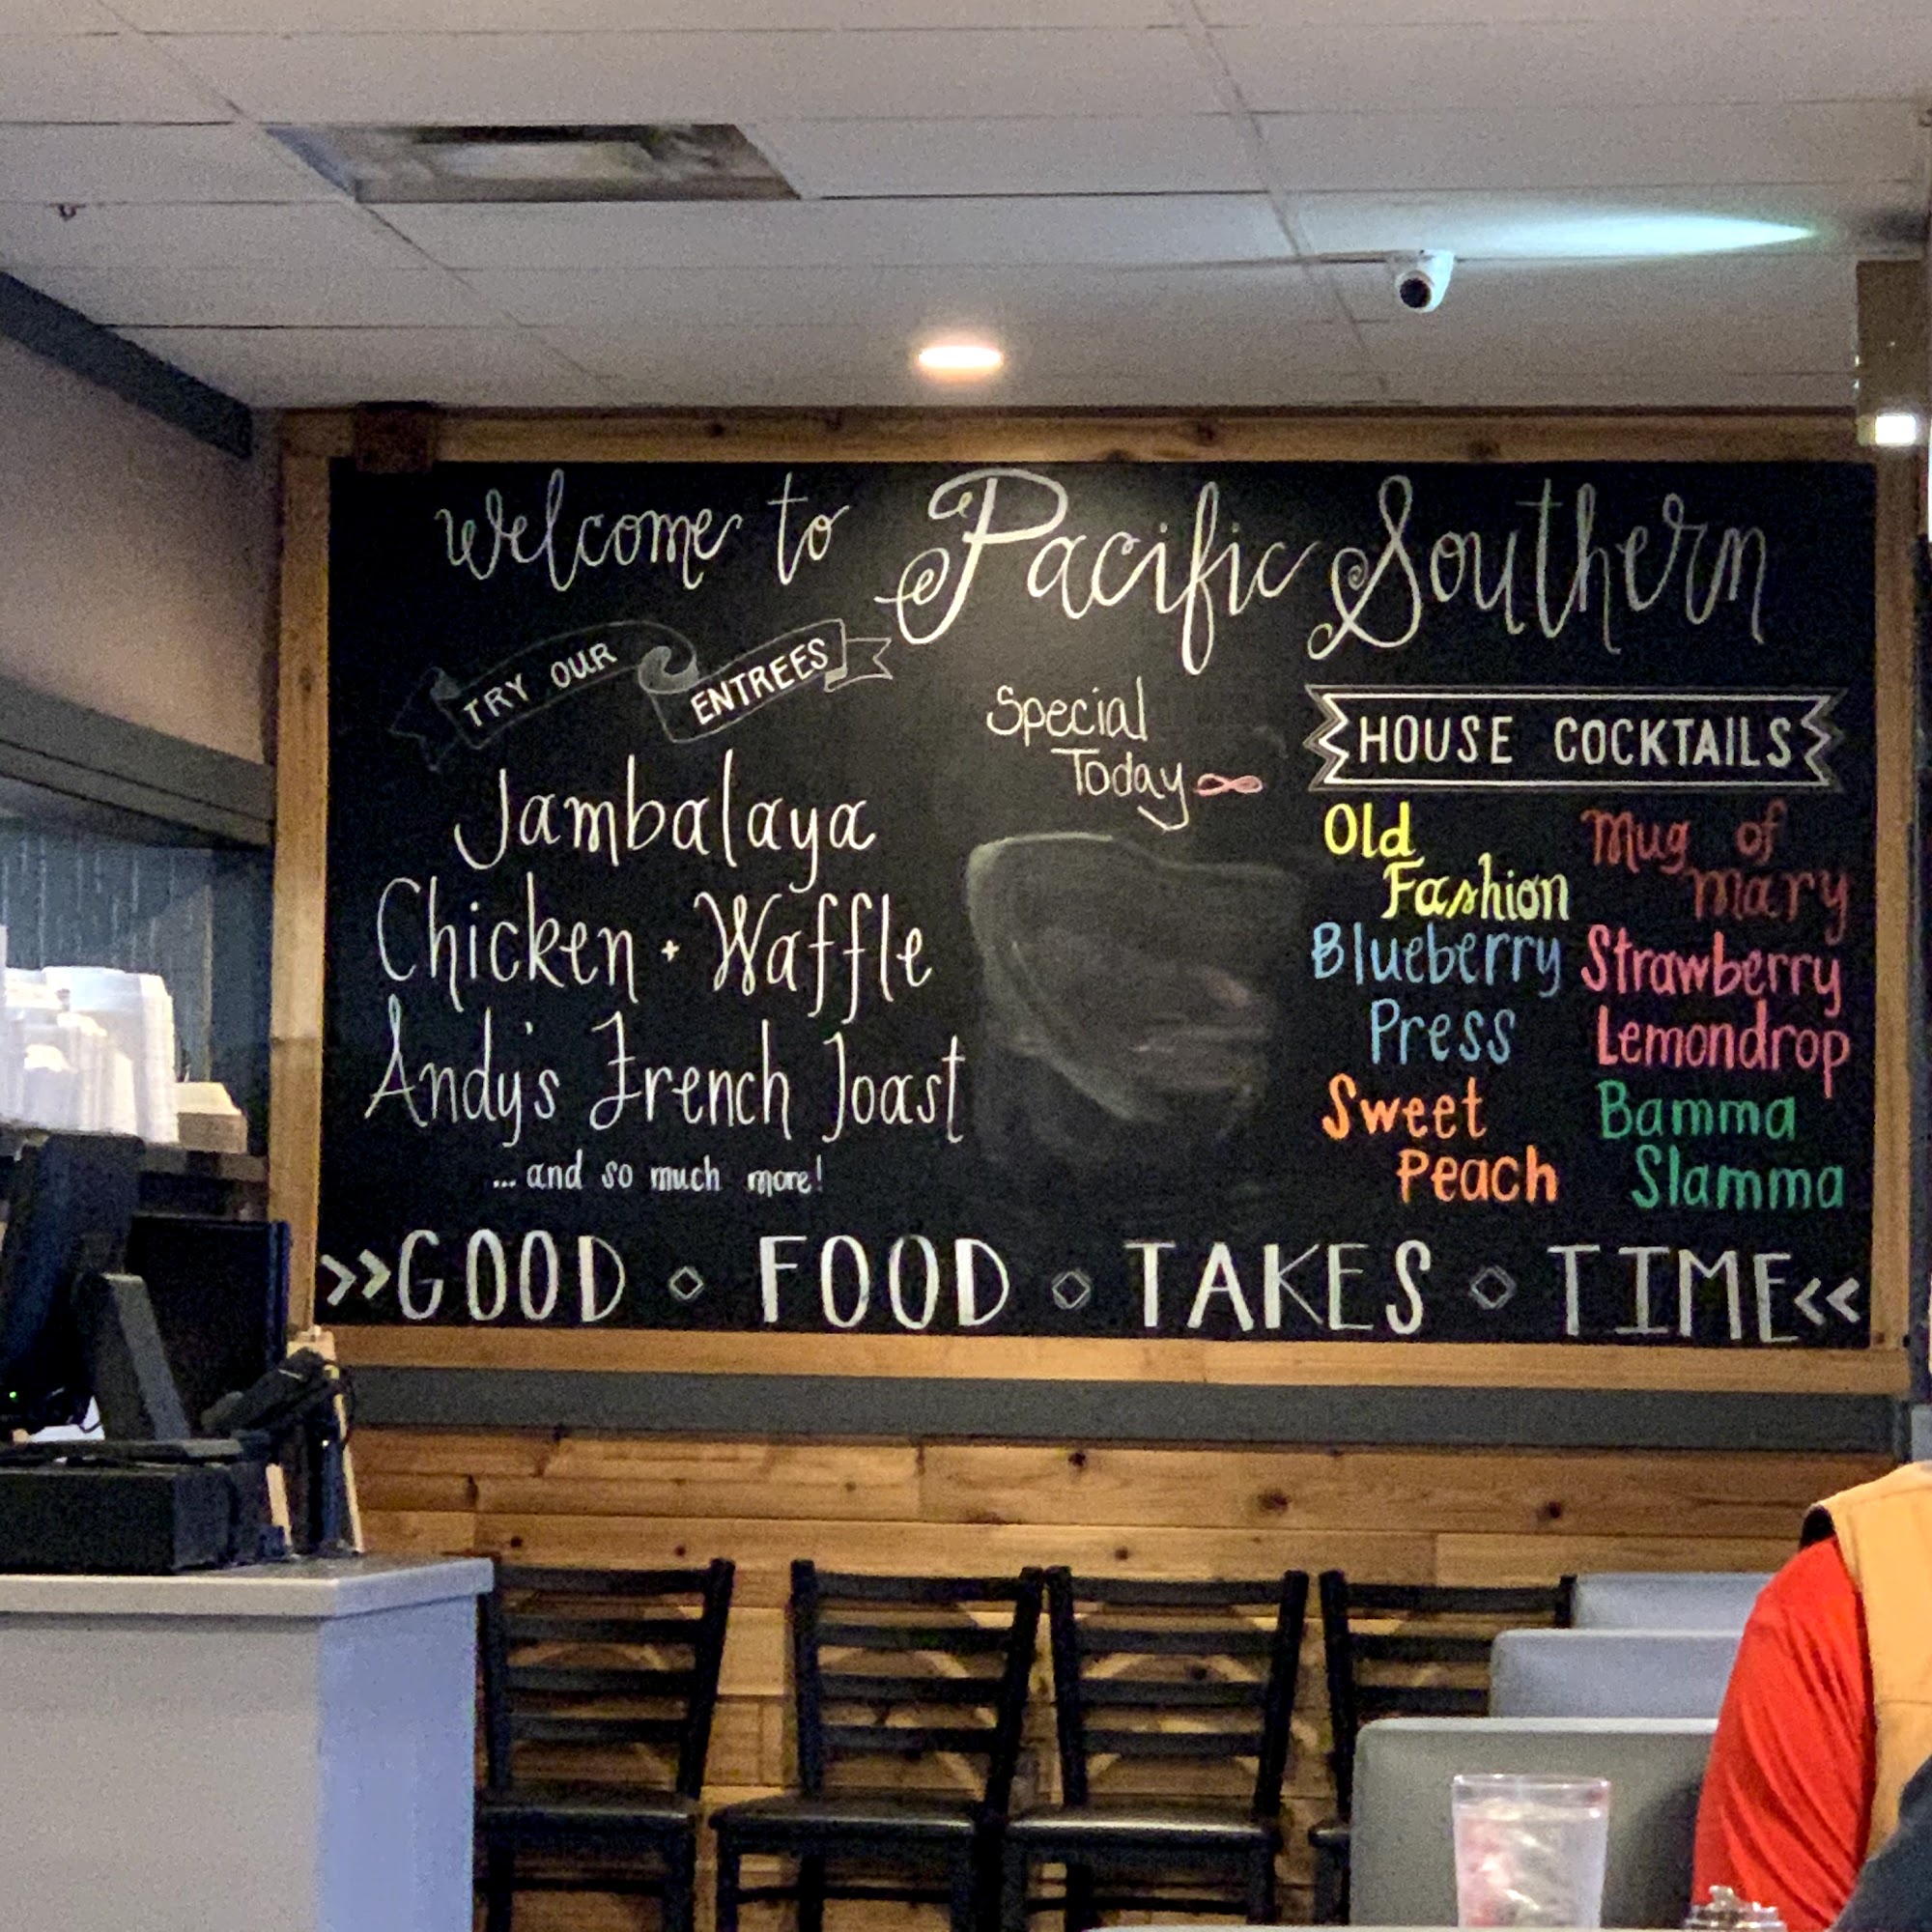 Welcome to Pacific Southern
TRY OUR ENTREES
Jambalaya
Chicken + Waffle
Andy's French Toast
... and so much more!
Special
Today
HOUSE COCKTAILS
Old
Fashion
Blueberry
Press
Sweet
Peach
Mug of
Mary
Strawberry
Lemondrop
Bamma
Slamma
>>GOOD ◇ FOOD ◇ TAKES ◇ TIME<<